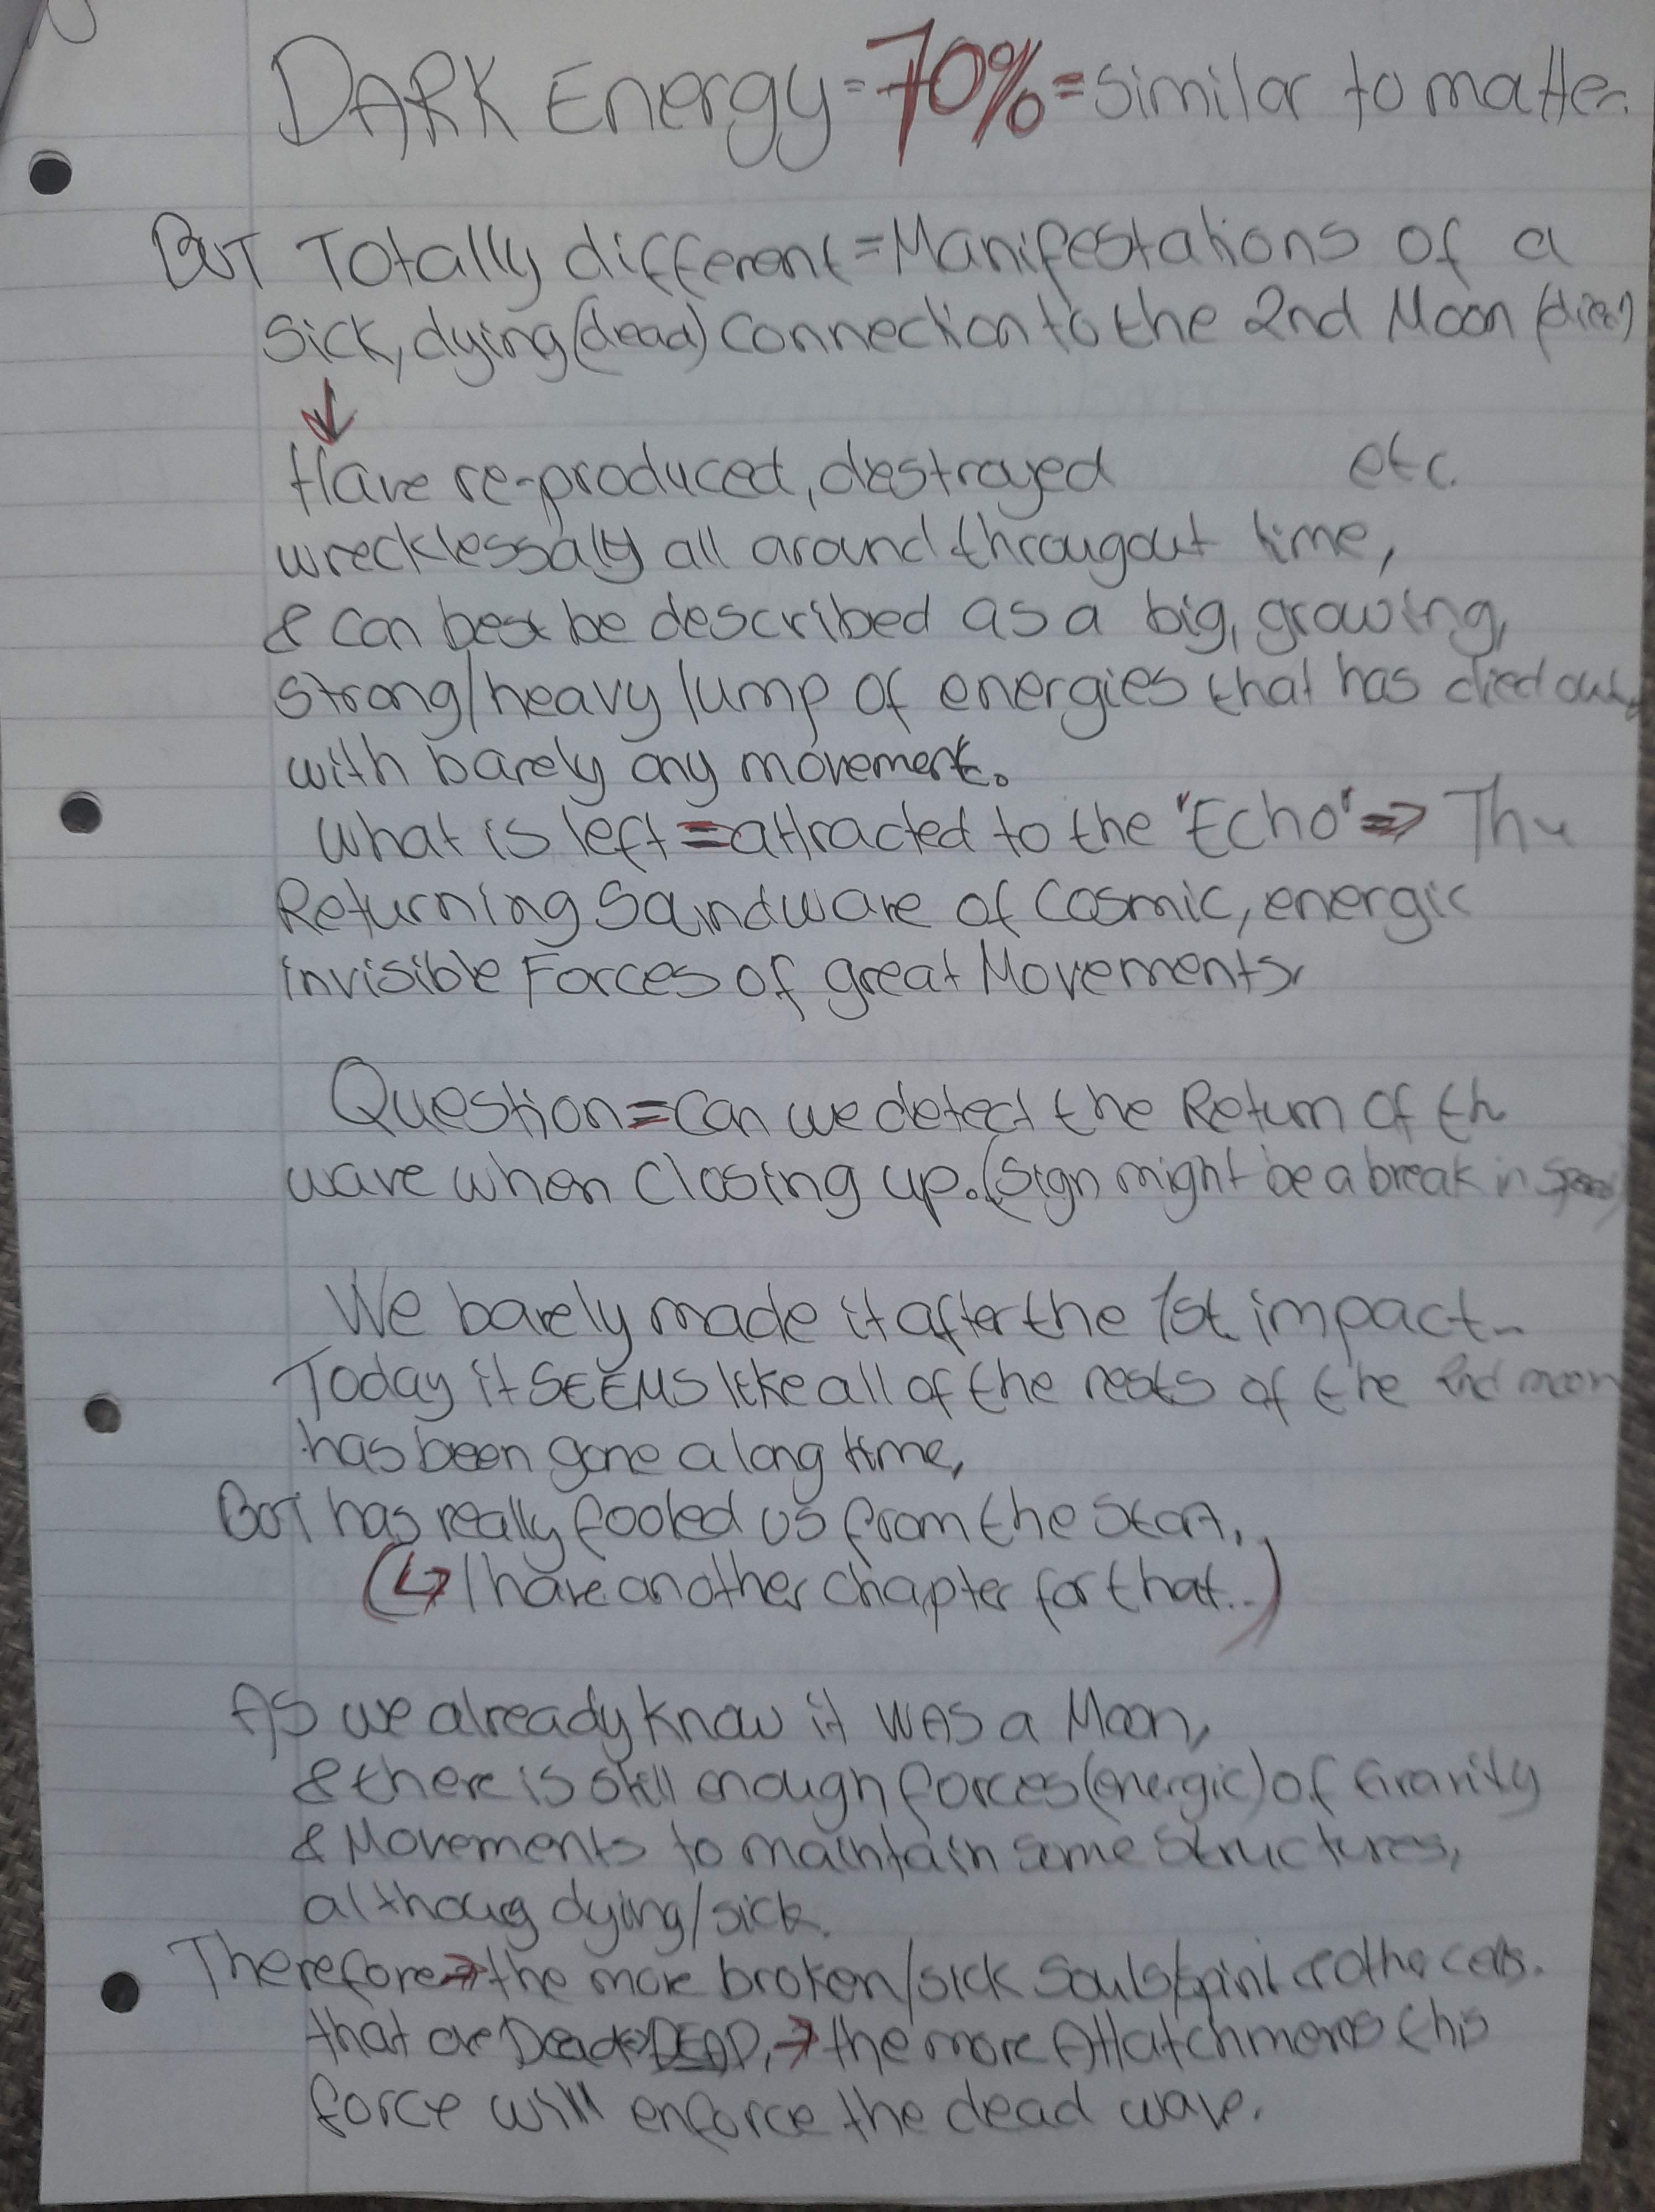 DARK Energy=70%=similar to matter.
BUT Totally different=Manifestations of a
sick, dying(dead) connection to the 2nd Moon
Have re-produced, destroyed etc.
wrecklessaly all around througout time,
& can best be described as a big, growing,
strong/heavy lump of energies that has died out,
with barely any movement.
What is left=attracted to the "Echo"⇒ The
Returning Soundwave of cosmic, energic
invisible Forces of great Movements.
Question=can we detect the Return of th
wave when closing up. (sign might be a break in
We barely made it after the 1st impact-
Today it SEEMS like all of the rests of the 2nd moon
has been gone a long time,
BUT has really fooled us from the start.
(↳ I have another chapter for that..)
AS we already know it WAS a Moon,
& there is still enough forces(energic) of Gravity
& Movements to maintain some structures,
althoug dying/sick.
Therefore→the more broken/sick souls/spirit cells.
that are DEAD,→the more Attatchmens this
force will enforce the dead wave.